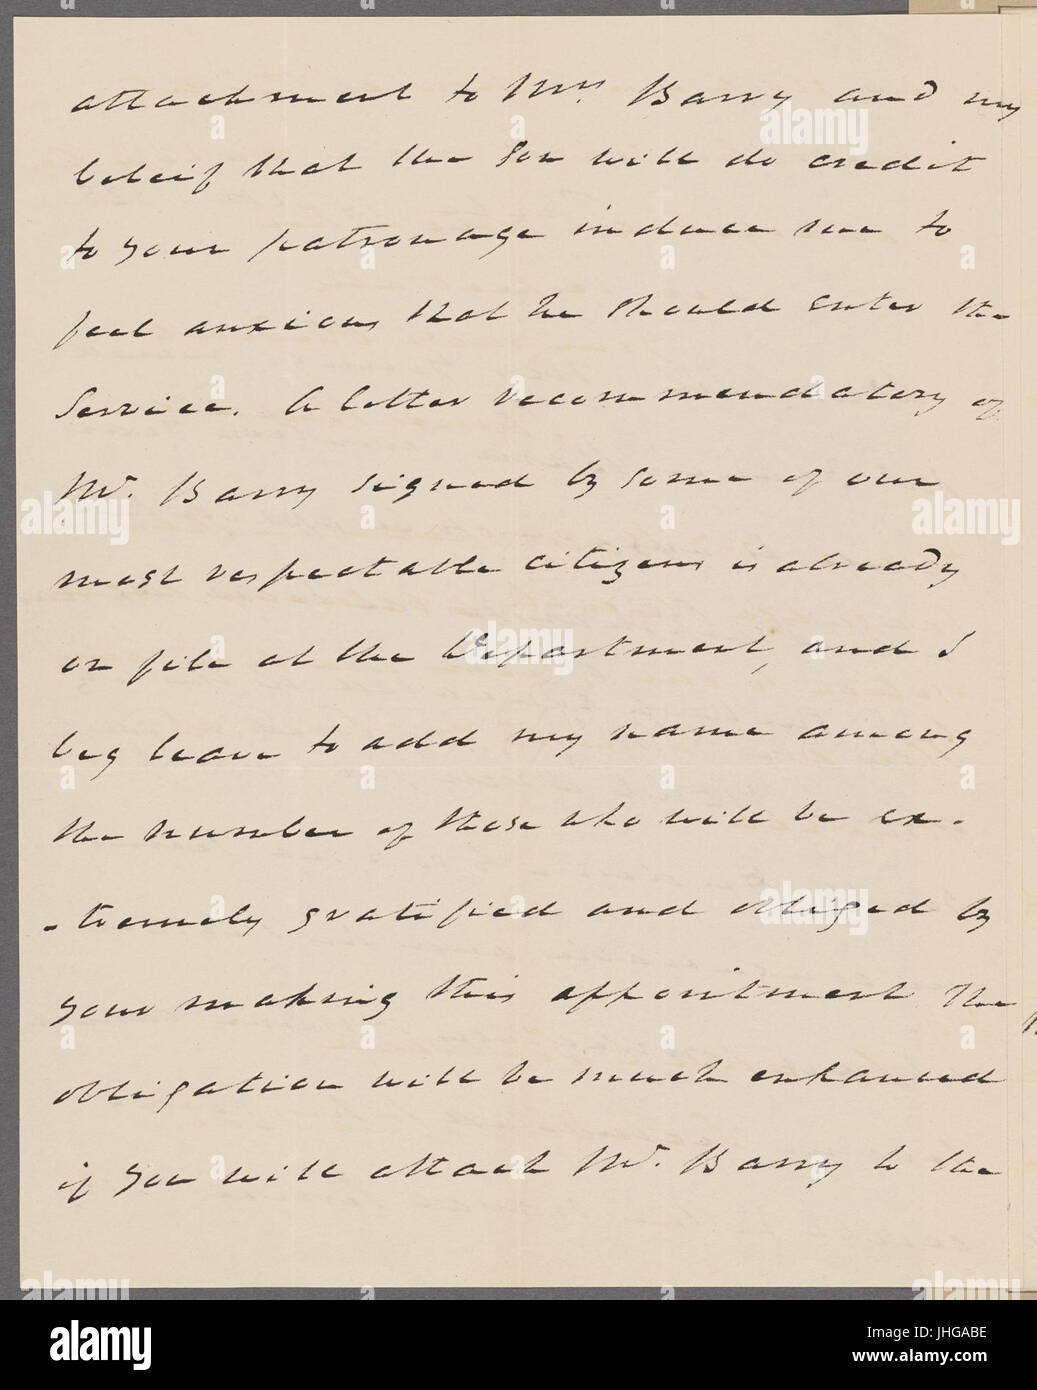 attachment to Mrs Barry and my
beleif that the Son will do credit
to your patronage induce me to
feel anxious that he should enter the
Service. A letter recommendatory of
Mr. Barry signed by some of our
most respectable citizens is already
on file at the Department, and I
beg leave to add my name among
the number of those who will be ex-
-tremely gratified and obliged by
your making this appointment The
obligation will be much enhanced
if you will attach Mr. Barry to the
alamy
Image ID: JHGABE
www.alamy.com